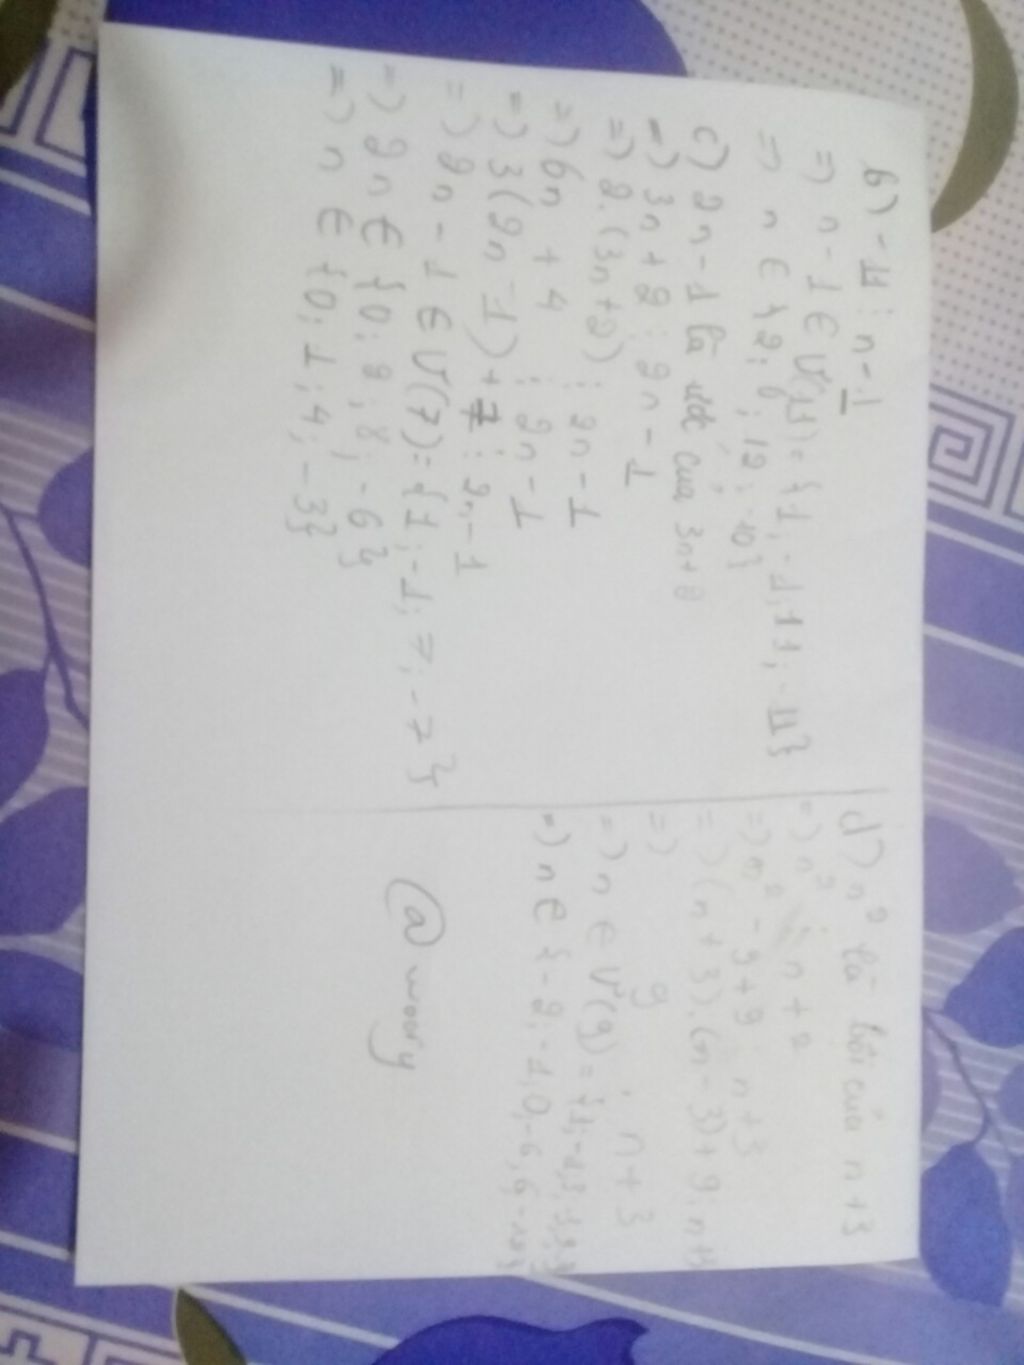 b) -11 ⋮ n-1
=) n-1 ∈ Ư(11) = {1; -1; 11; -11}
=) n ∈ {2; 0; 12; -10}
c) 2n-1 là ước của 3n+2
=) 3n+2 ⋮ 2n-1
=) 2.(3n+2) ⋮ 2n-1
=) 6n + 4 ⋮ 2n-1
=) 3(2n-1)+7 ⋮ 2n-1
=) 2n-1 ∈ Ư(7) = {1; -1; 7; -7}
=) 2n ∈ {0; 2; 8; -6}
=) n ∈ {0; 1; 4; -3}
d) n² là bội của n+3
=) n² ⋮ n+2
=) n² - 9+9 n+3
=) (n+3).(n-3)+9 n+3
=) 9 ⋮ n+3
=) n ∈ Ư(9) = {1; -1; 3; -3;
=) n ∈ {-2; -1, 0, -6, 6,
@moony